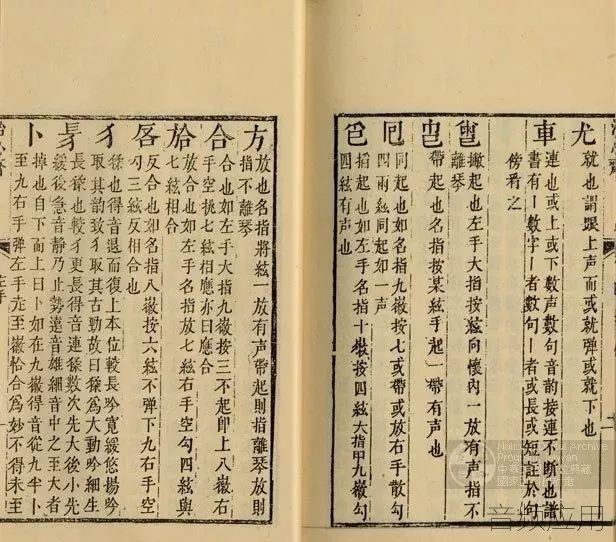 尤 就也謂跟上声而或就弹或就下也
車 連也或上或下數声數句音韵接連不断也譜
書有丨數字丨者數句丨者或長或短註於句
傍看之
撇起也左手大指按絃向懷內一放有声指不
離琴
带起也名指按某絃手起一带有声也
同起也如名指九徽按七或带或放右手散勾
四两絃同起如一声
掐起也如左手名指十徽按四絃大指甲九徽勾
四絃有声也
方 放也名指將絃一放有声带起則指離琴放則
指不離琴
合 合也如左手大指九徽按三不起即上八徽右
手空挑七絃相應亦曰應合
放合也如左手名指放七絃右手空勾四絃與
七絃相合
反合也如名指八徽按六絃不弹下九右手空
勾三絃反相合也
犭 猱也得音退而復上本位較長吟寬緩悠揚吟
取其韵故犭取其古勁故曰猱爲大動吟細生
長猱也較犭更長得音連猱數次先大後小先
緩後急音静乃止勢遠音雄細音中之至大者
卜 掉也自下而上曰卜如在九徽得音從九半卜
至九右手弹左手走至徽恰合爲妙不得未至
音频应用